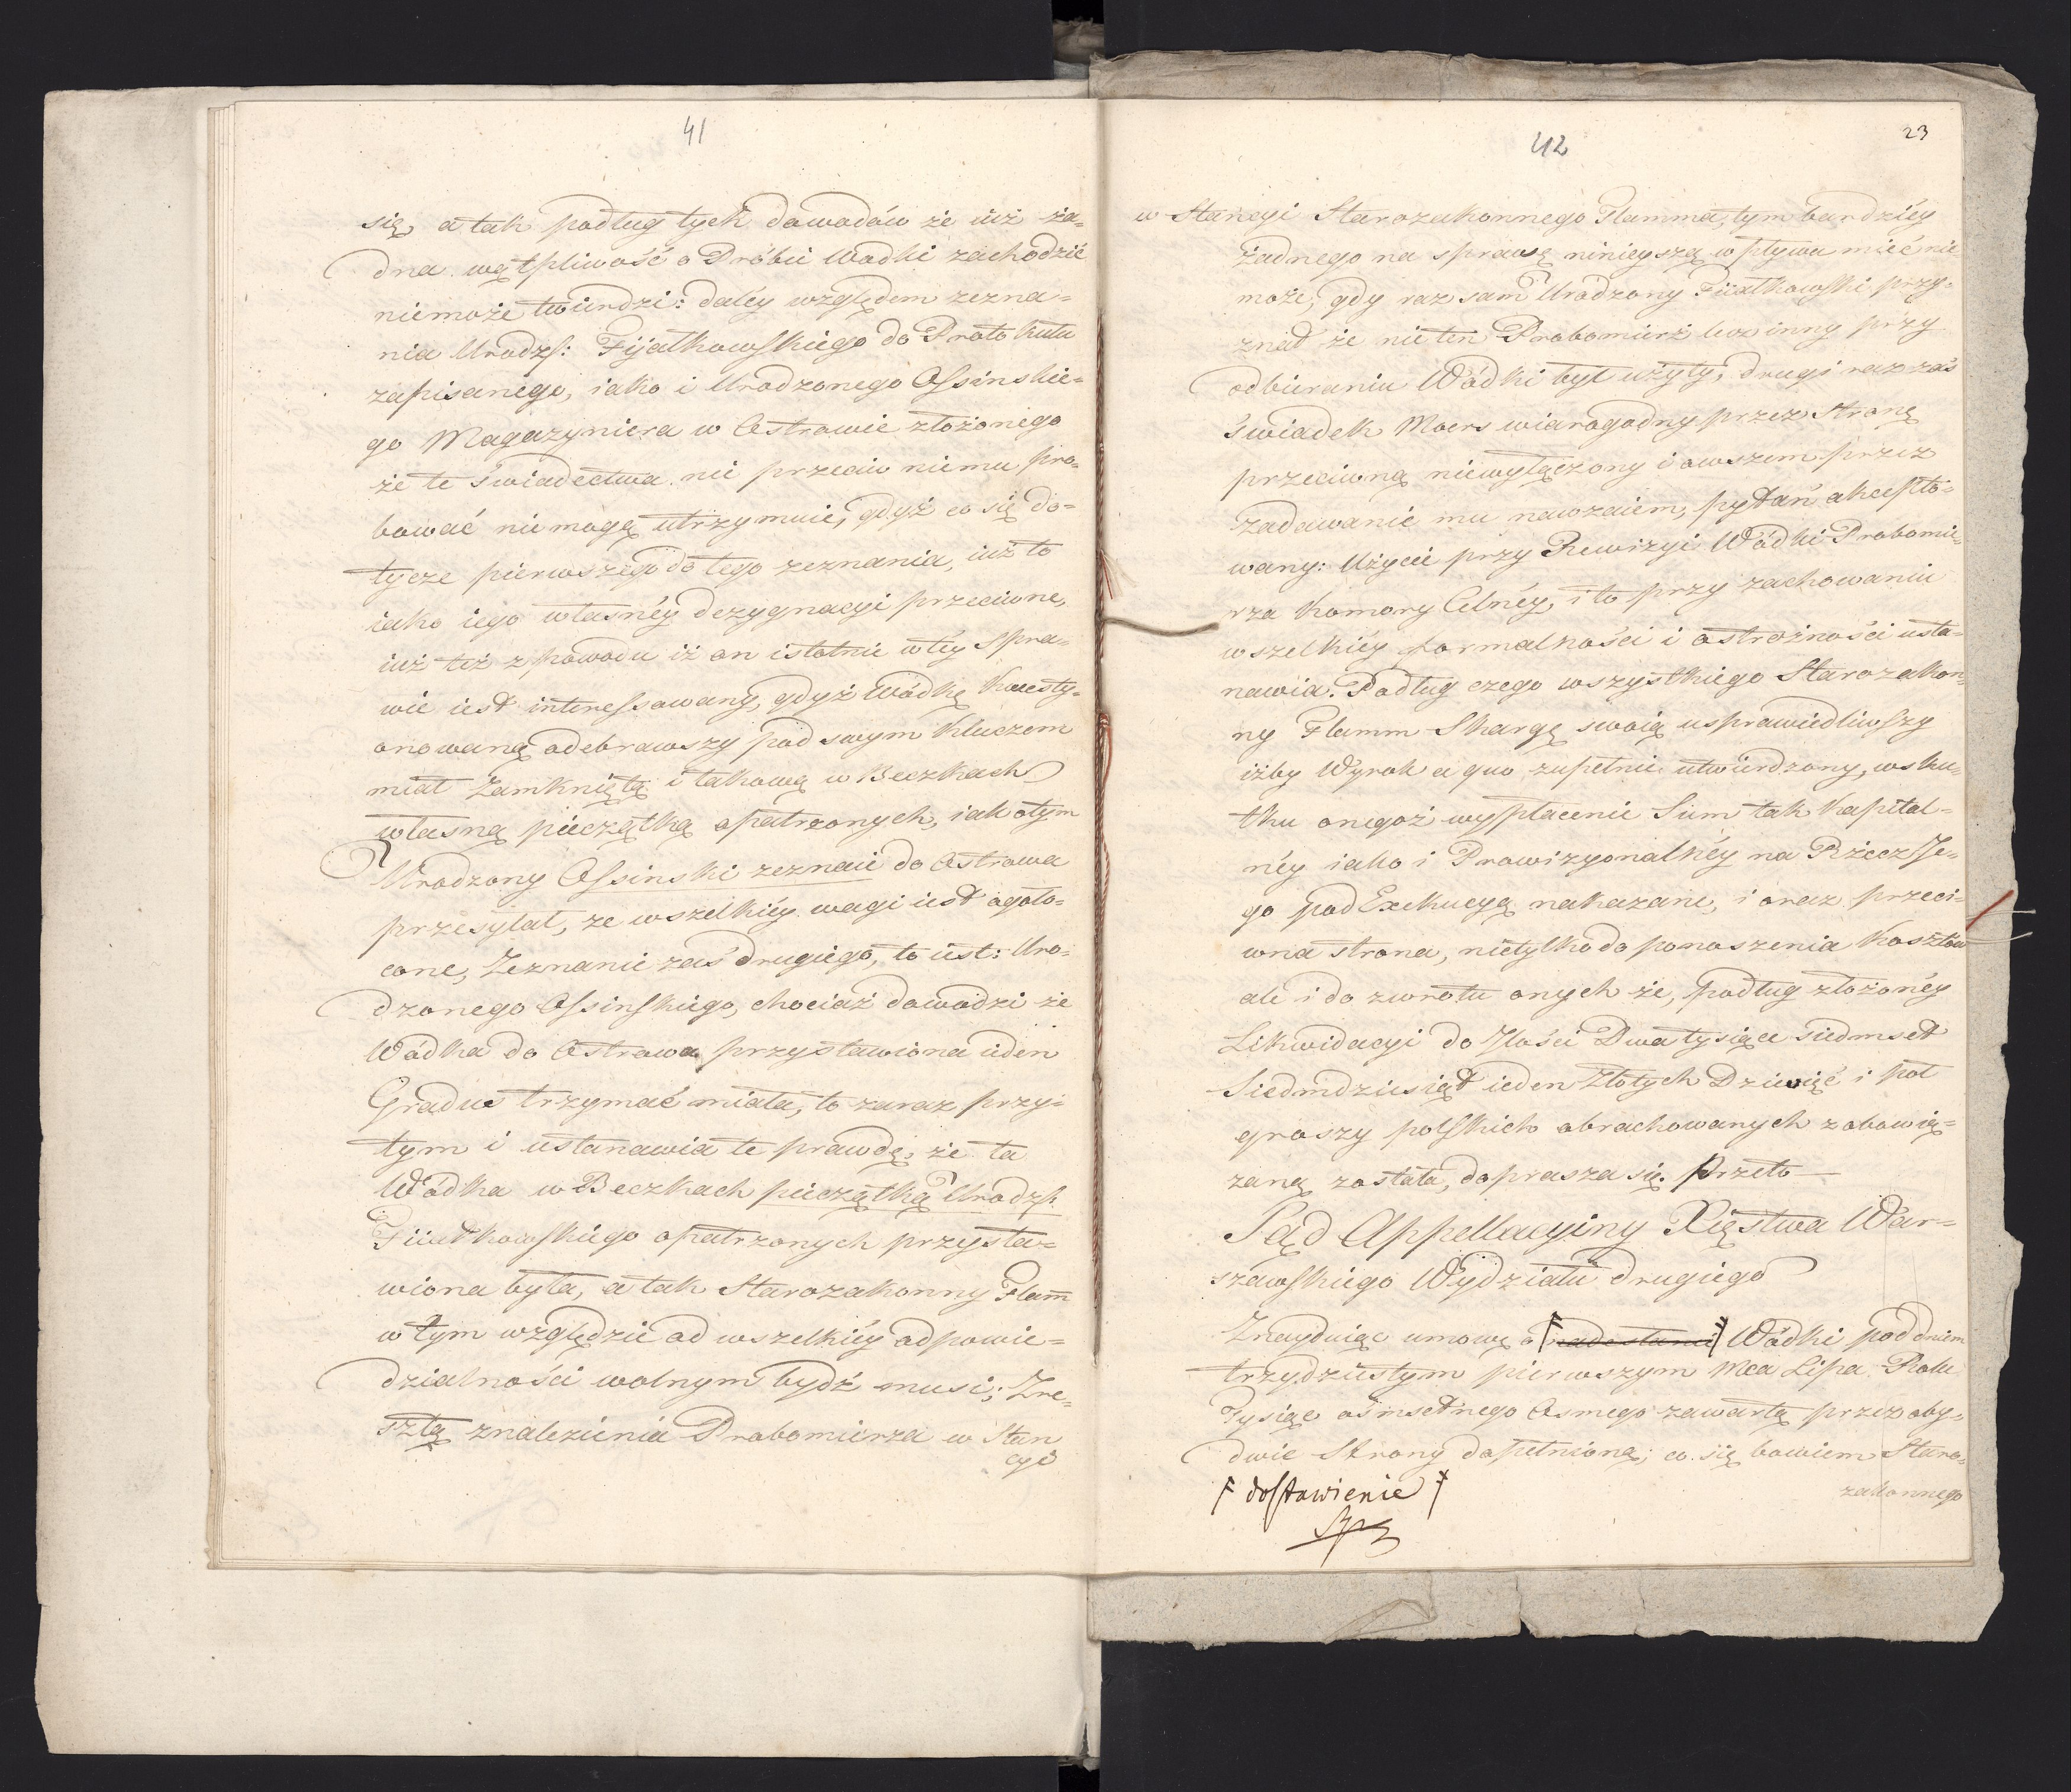 41
się, a tak podług tych dowodów że iuż ża-
dna wątpliwość o Próbie Wodki zachodzić
niemoże twierdzi: daléy względem zezna-
nia Urodzs: Fijałkowskiego do Protokułu
zapisanego, iako i Urodzonego Ossinskie-
go Magazyniera w Ostrowie złożonego
że te świadectwa nic przeciw niemu pro-
bować nie mogą utrzymuie, gdyż co się do-
tycze pierwszego do tego zeznania, iuż to
iako iego własnéy dezygnacyi przeciwne,
iuż też z powodu iż on istotnie w téy Spra-
wie iest interessowany, gdyż Wódkę kwesty-
onowaną odebrawszy pod swym Kluczem
miał zamkniętą i takową w Beczkach
własną pieczątką opatrzonych, iak o tym
Urodzony Ossinski zeznaie do Ostrowa
przesyłał, ze wszelkiéy wagi iest ogoło-
cone, Zeznanie zaś drugiego, to iest: Uro-
dzonego Ossinskiego, chociaż dowodzi że
Wódka do Ostrowa przystawiona ieden
Gradus trzymać miała, to zaraz przy-
tym i ustanawia te prawdę, że ta
Wódka w Beczkach pieczątką Urodzs.
Fiiałkowskiego opatrzonych przysta-
wiona była, a tak Starozakonny Flam̄
w tym względzie od wszelkiéy odpowie-
dzialności wolnym bydź musi; Zre-
sztą znalezienia Probomierza w Stan
cyi
42
23
w Stancyi Starozakonnego Flamma, tym bardziéy
żadnego na sprawę ninieyszą wpływu mieć nie
może, gdy raz sam Urodzony Fijałkowski przy-
znał że nie ten Probomierz lecz inny przy
odbieraniu Wódki był użyty, drugi raz zaś
świadek Moers wiarogodny przez Stronę
przeciwną niewyłączony i owszem przez
zadawanie mu nawzaiem, pytań akcepto-
wany: Użycie przy Rewizyi Wódki Probomie-
rza Komory Celnéy, i to przy zachowaniu
wszelkiéy formalności i ostrożności usta-
nawia. Podług czego wszystkiego Starozakon-
ny Flamm Skargę swoią usprawiedliwszy
iżby Wyrok a quo zupełnie utwierdzony, w sku-
tku onegoż wypłacenie Sum tak Kapital-
néy iako i Prowizyonalnéy na Rzecz Je-
go pod Exekucyą nakazane, i oraz przeci-
wna strona, nietylko do ponoszenia Kosztów
ale i do zwrotu onych że, podług złożonéy
Likwidacyi do Ilości Dwa tysiące siedmset
Siedmdziesiąt ieden Złotych Dziewięć i poł
groszy polskich obrachowanych zobowią-
zaną została, doprasza się. Przeto
Sąd Appellacyiny Xięstwa War-
szawskiego Wydziału drugiego
Znayduiąc umowę o nadesłanie Wódki pod dniem
trzydziestym pierwszym Mca Lipa Roku
Tysiąc ośmsetnego Osmego zawartą przez oby-
dwie Strony dopełnioną; co się bowiem Staro-
zakonnego
Ⱶ dostawienie Ɨ